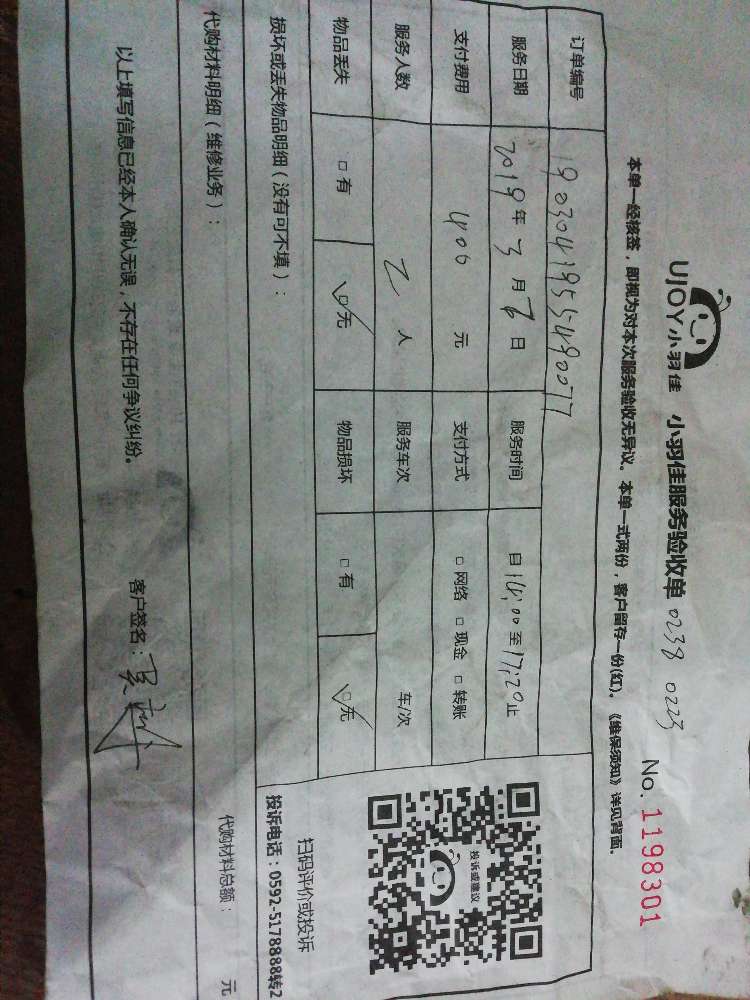 UJOY小羽佳 小羽佳服务验收单 0238 0223
No. 1198301
本单一经核签，即视为对本次服务验收无异议。本单一式两份，客户留存一份(红)。《维保须知》详见背面。
订单编号 1903041955490077
服务日期 2019年3月6日 服务时间 自14:00至17:20止
支付费用 400元 支付方式 □网络 □现金 □转账
服务人数 2人 服务车次 车/次
物品丢失 □有 ☑无 物品损坏 □有 ☑无
损坏或丢失物品明细（没有可不填）：
投诉或建议
扫码评价或投诉
投诉电话：0592-5178888转2
代购材料明细（维修业务）： 代购材料总额： 元
以上填写信息已经本人确认无误，不存在任何争议纠纷。 客户签名：